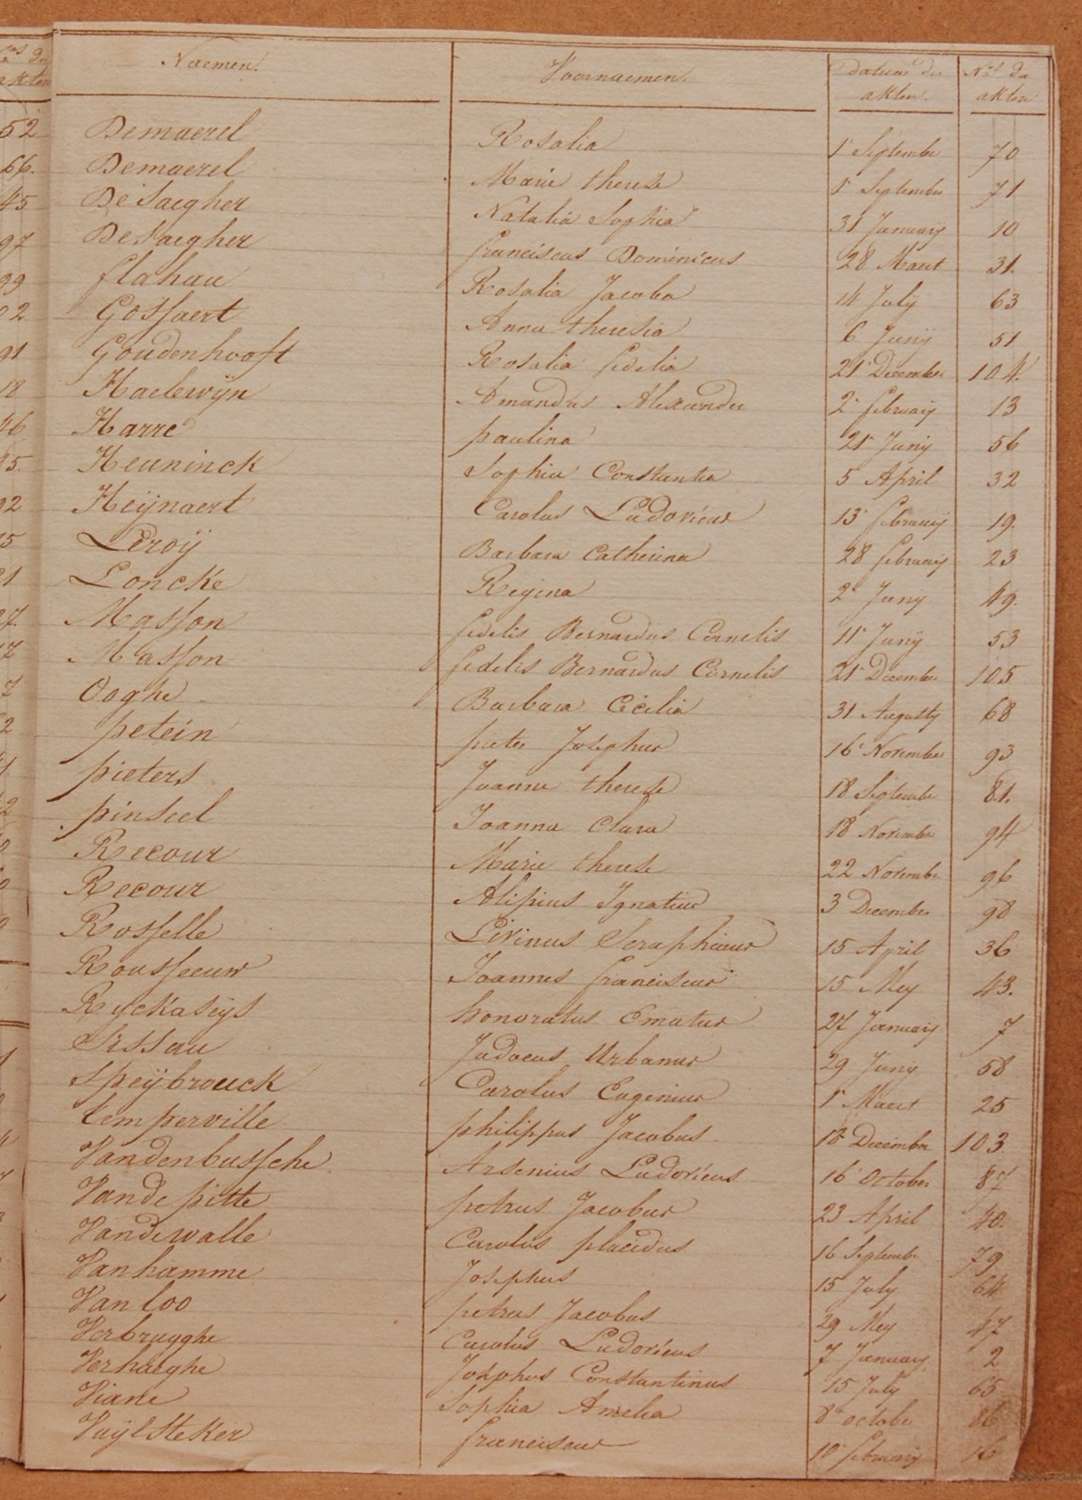 Naemen. Voornaemen. datum der akten. N.os der akten
52 Demaerel Rosalia 1 Septembe 70
66. Demaerel Marie therese 1 Septembe 71
45 De Saegher Natalia Sophia 31 Januarij 10
97 De Saegher franciscus Dominicus 28 Maert 31.
99 flahau Rosalia Jacoba 14 July 63
02 Gossaert Anna theresia 6 Junij 51
91 Goudenhooft Rosalia fidelia 21 December 104.
18 Haelewijn Amandus Alexander 2 februarij 13
46 Harre paulina 21 Junij 56
45. Heuninck Sophia Constantia 5 April 32
92 Heijnaert Carolus Ludovicus 13 februarij 19.
15 Leroij Barbara Catherina 28 februarij 23
21 Loncke Regina 2 Juny 49.
27. Masson fidelis Bernardus Cornelis 11 Junij 53
17 Masson fidelis Bernardus Cornelis 21 December 105
7 Ooghe Barbara Cecilia 31 Augusty 68
2 petein pieter Josephus 16 November 93
1 pieters Joanne therese 18 Septembe 81.
2 pinseel Joanna Clara 18 Novembe 94
Recour Marie therese 22 Novembe 96
Recour Alipius Ignatius 3 December 98
Rosselle Livinus Seraphinus 15 April 36
Rousseeuw Joannes franciscus 15 Mey 43.
Ryckaseijs honoratus Ematus 27 Januarij 7
Sissau Judocus Urbanus 29 Juny 58
Speijbrouck Carolus Eugenius 1 Maert 25
temperville philippus Jacobus 18 December 103
Vandenbussche Arsenius Ludovicus 16 October 87
Vande pitte petrus Jacobus 23 April 40.
Vandewalle Carolus placidus 16 Septembe 79
Vanhamme Josephus 15 July 64
Van loo petrus Jacobus 29 Mey 47
Verbrugghe Carolus Ludovicus 7 Januarij 2
Verhaeghe Josephus Constantinus 15 July 65
Viane Sophia Amelia 8 octobe 86
Vuylsteker franciscus 10 februarij 16